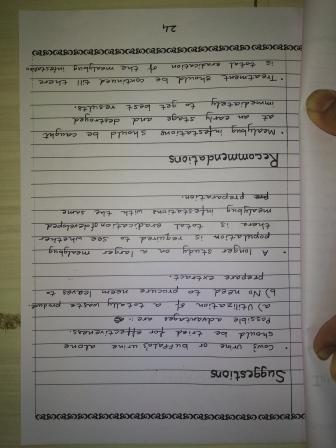 Suggestions
• Cow's urine or buffalo's urine alone
should be tried for effectiveness.
Possible advantages are :-
a) Utilization of a totally waste product
b) No need to procure neem leaves to
prepare extract.
• A longer study on a larger mealybug
population is required to see whether
there is total eradication of developed
mealybug infestations with the same
preparation.
Recommendations
• Mealybug infestations should be caught
at an early stage and destroyed
immediately to get best results.
• Treatment should be continued till there
is total eradication of the mealybug infestation
24